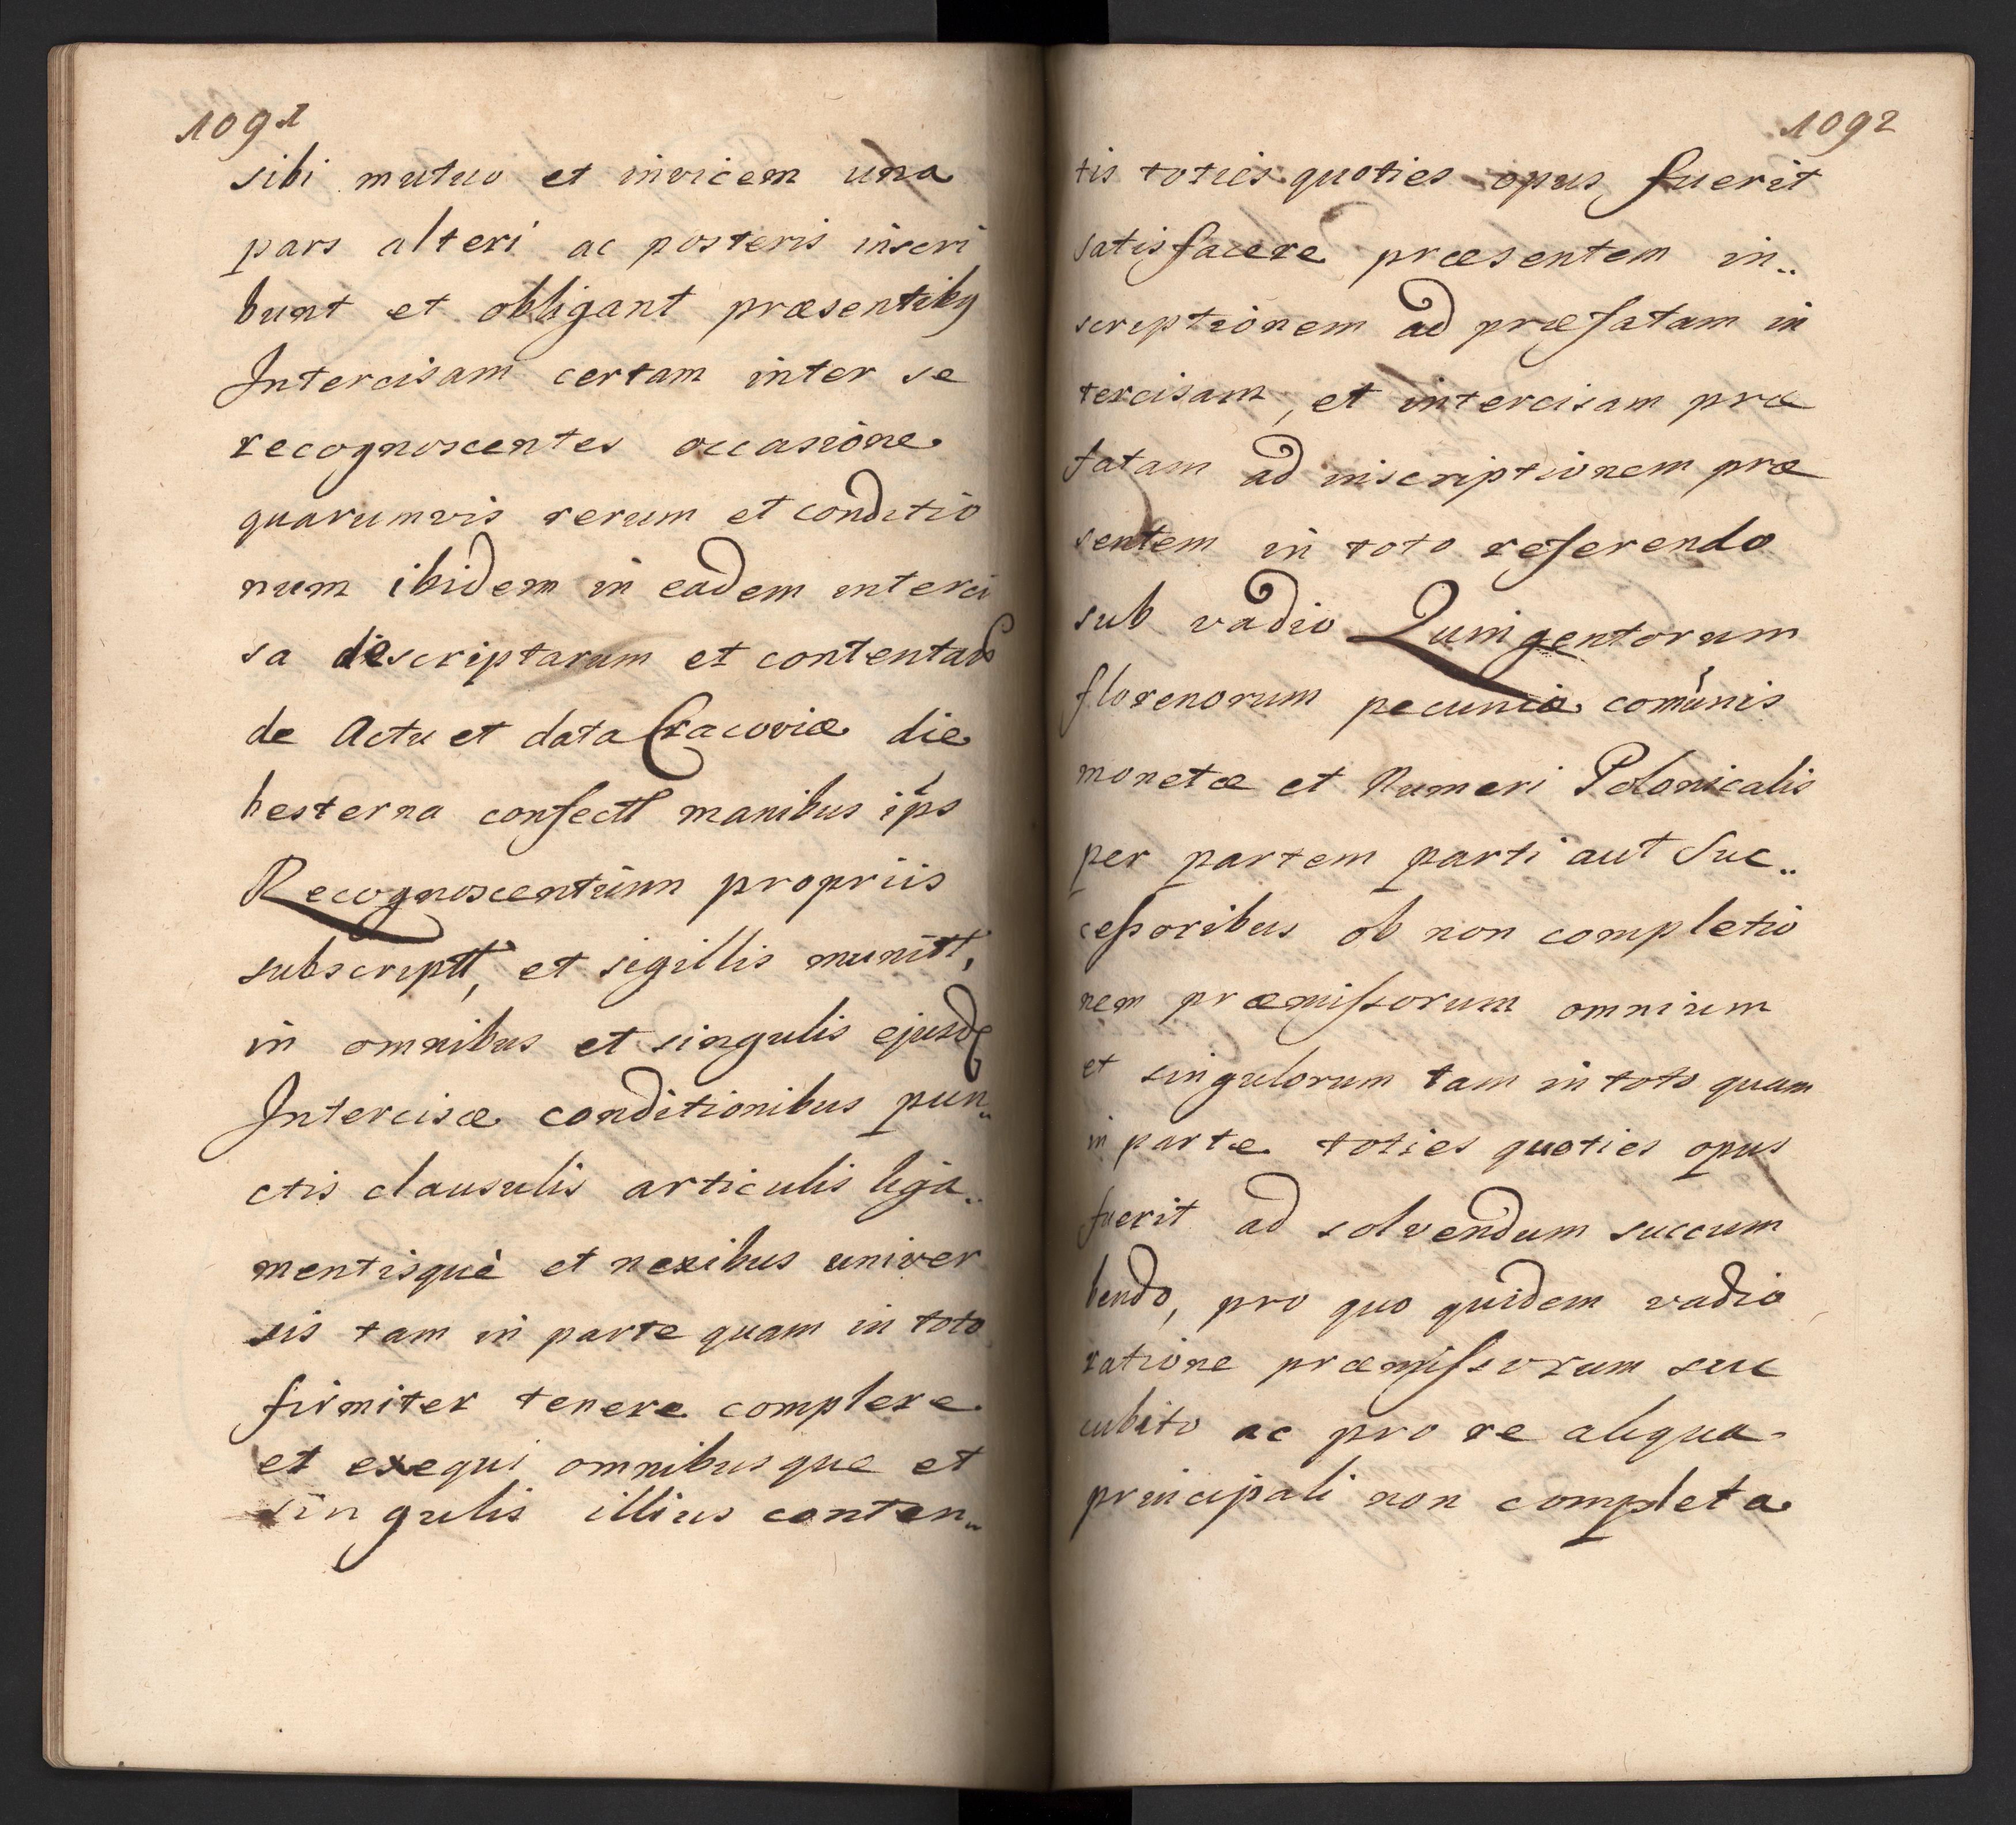 1091
sibi mutuo et invicem una
pars alteri ac posteris inscri
bunt et obligant præsentibq
Intercisam certam inter se
recognoscentes occasione
quarumvis rerum et conditio
num ibidem in eadem interci
sa descriptarum et contentar
de Actu et data Cracoviæ die
hesterna confectt manibus ips
Recognoscentium propriis
subscriptt, et sigillis munitt,
in omnibus et singulis ejusd
Intercisæ conditionibus pun„
ctis clausulis articulis liga„
mentisquè et nexibus univer
sis tam in parte quam in toto
firmiter tenere complere
et exequi omnibusque et
singulis illius conten„
1092
tis toties quoties opus fuerit
satisfacere præsentem in„
scriptionem ad præfatam in
tercisam, et intercisam præ
fatam ad inscriptionem præ
sentem in toto referendo
sub vadio Quingentorum
florenorum pecuniæ com̃unis
monetæ et Numeri Polonicalis
per partem parti aut Suc„
cessoribus ob non completio
nem præmissorum omnium
et singulorum tam in toto quam
in parte toties quoties opus
fuerit ad solvendum succum
bendo, pro quo quidem vadio
ratione præmissorum suc
cubito ac pro re aliqua
principali non completa